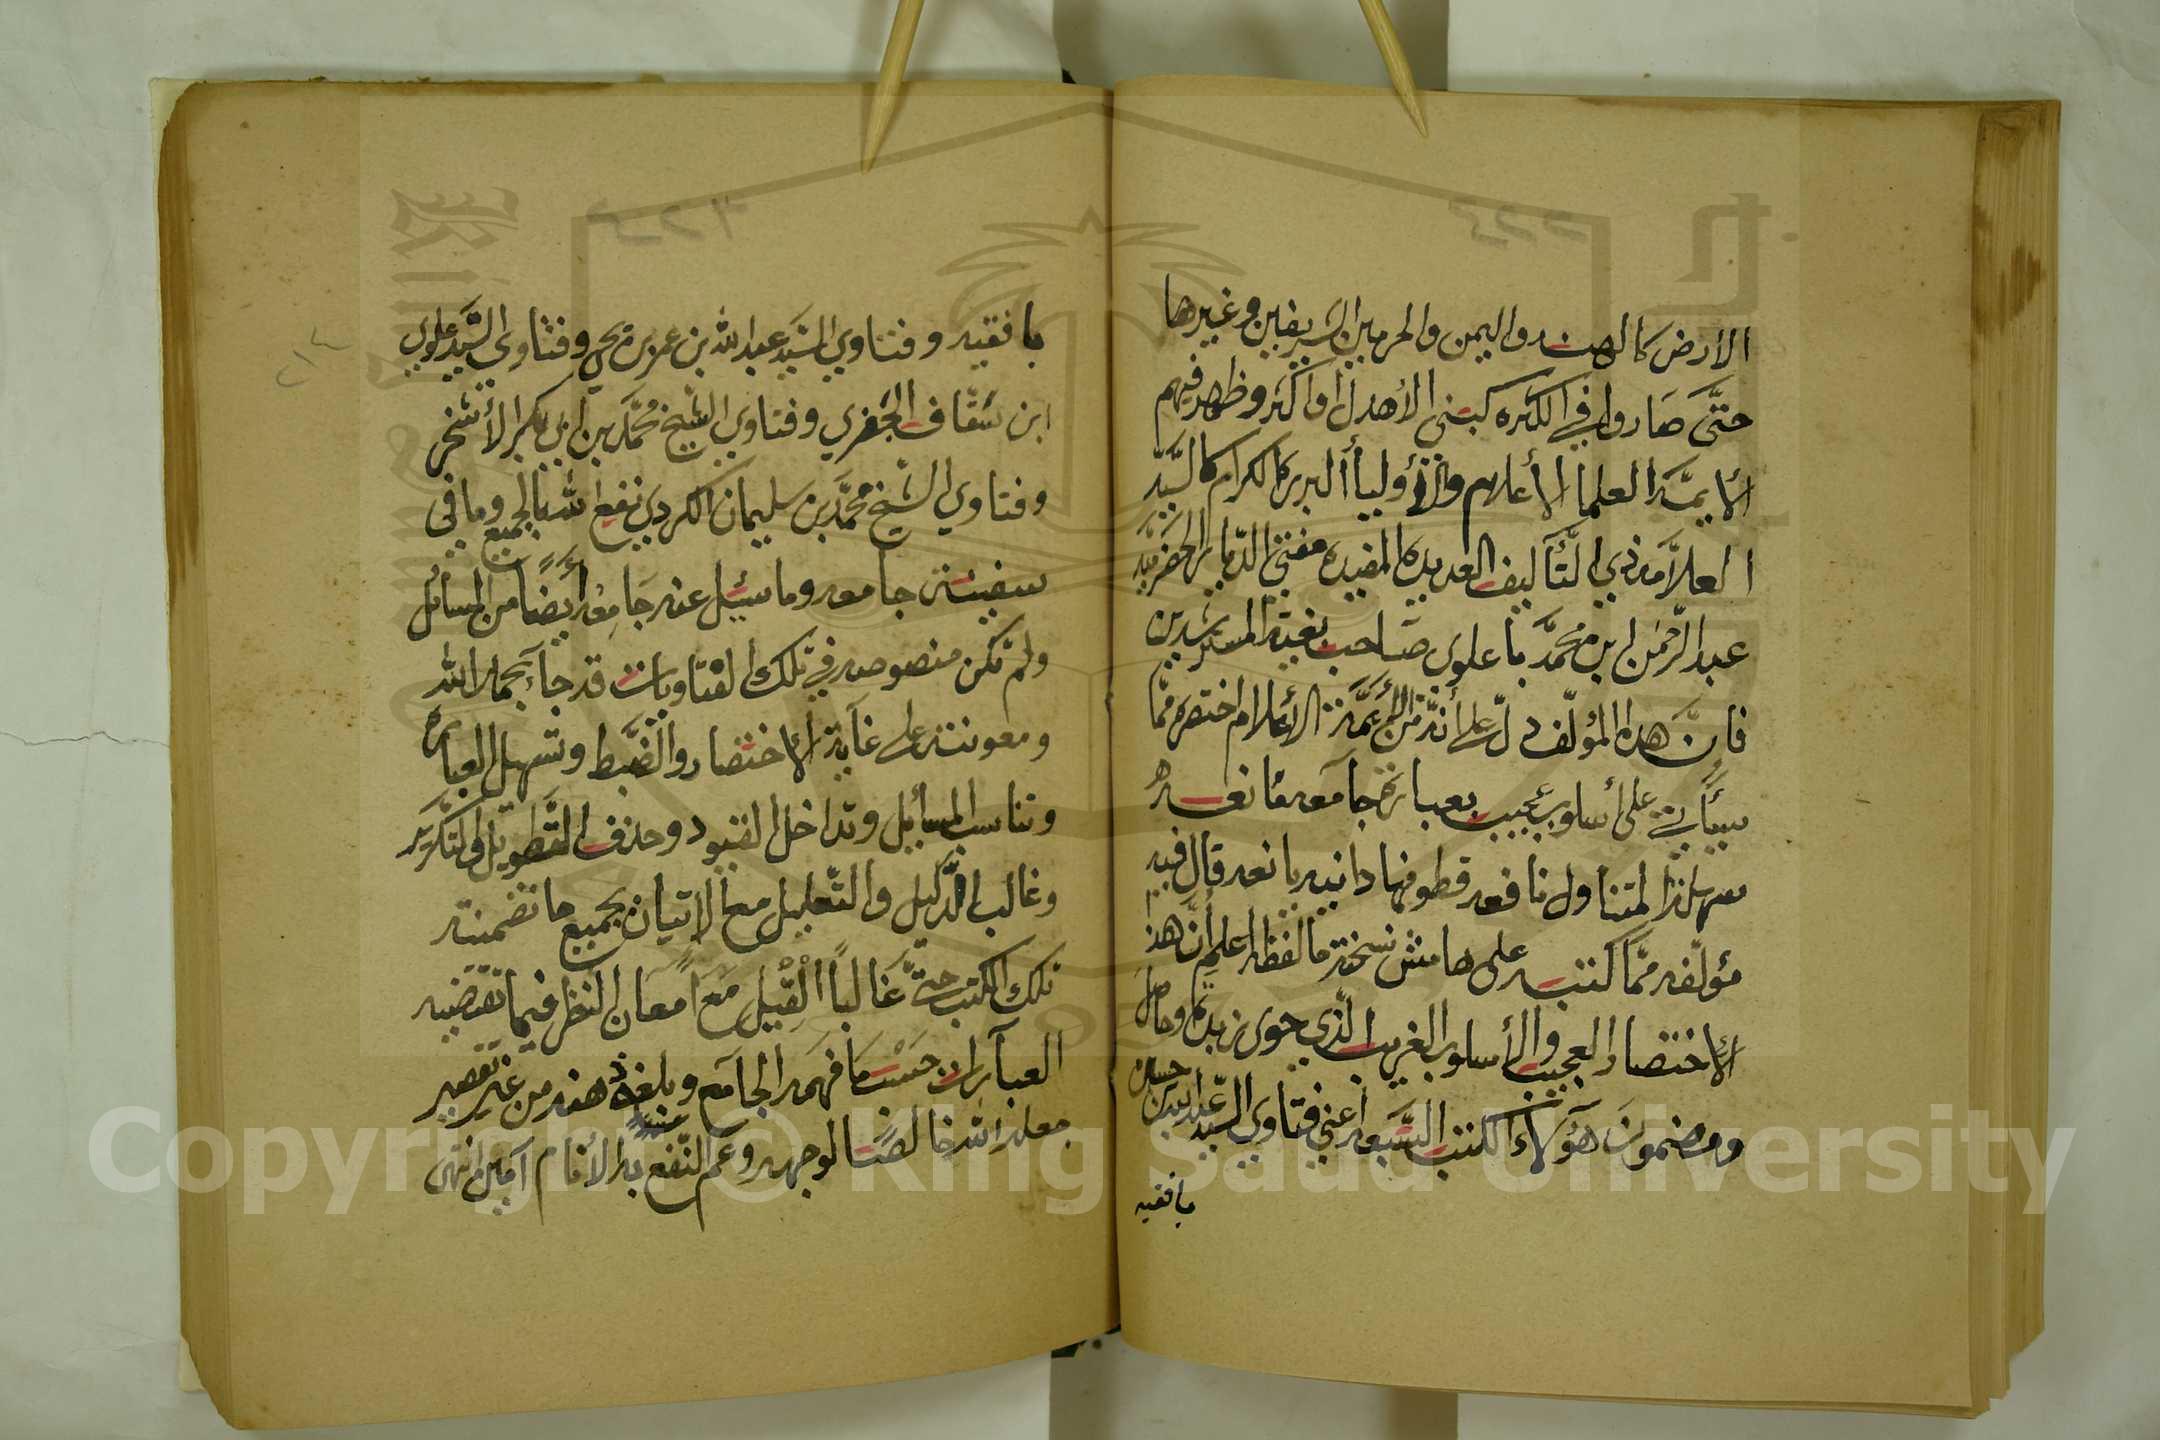 الأرض كالهند واليمن والحرمين الشريفين وغيرها
حتَّى صَاروا في الكثره كبني الأهدل أو أكثر وظهر فيهم
الأيمَّة العلما الأعلام والأوليأ البرره الكرام كالسَّيّد
العلاَّمه ذي التَّأليف العديده المفيده مفتي الدّيار الحَضرميَّه
عبد الرَّحمٰن ابن محمَّد باعلوي صَاحب بغية المسترشدين
فاِنَّ هذا المؤلّف دلّ على أنّه من الأئمَّة الأعلام اختصره ممَّا
سيأتي على أسلوب عجيب بعبارة جامعه مانعه
سهلة المتناول نافعه قطوفها دانيه يانعه قال فيه
مؤلّفه ممَّا كتبه على هامش نسخته ما لفظه اعلم أنّ هذ
الإختصار العجيب والأسلوب الغريب الّذي حوى زبدة وحاصل
ومضمون هؤلاء الكتب السَّبعه أعني فتاوي السيّد عبدالله بن حسين
بافقيه
بافقيه وفتاوي السَّيد عبدالله بن عمر بن يحي وفتاوي السَّيّد علوي
ابن سَقَّاف الجَفري وفتاوي الشيخ محمَّد بن ابي بكر الأشخر
وفتاوي الشيخ محمَّد بن سليمان الكردي نفع الله بالجميع وما في
سفينة جامعه وما سئل عنه جَامِعُه أيضًا من المسائل
ولم تكن منصوصه في تلك الفتاويات قد جاء بحمد الله
ومعونته على غاية الإختصار والضَّبط وتسهيل العباره
وتناسب المسائل وتداخل القيود وحذف التَّطويل والتكرير
وغالب الدَّليل والتَّعليل مع الاتيان بجميع ما تضمنته
تلك الكتب حتَّى غَالبًا القِيْل مَعَ امعَان النظر فيما تقتضيه
العبارات حَسْبَ مَا فهمه الجامع وبلغه ذهنه من غير تقصير
جعله الله خالصًا لوجهه وعم النّفع به الأنام آمين انتهى